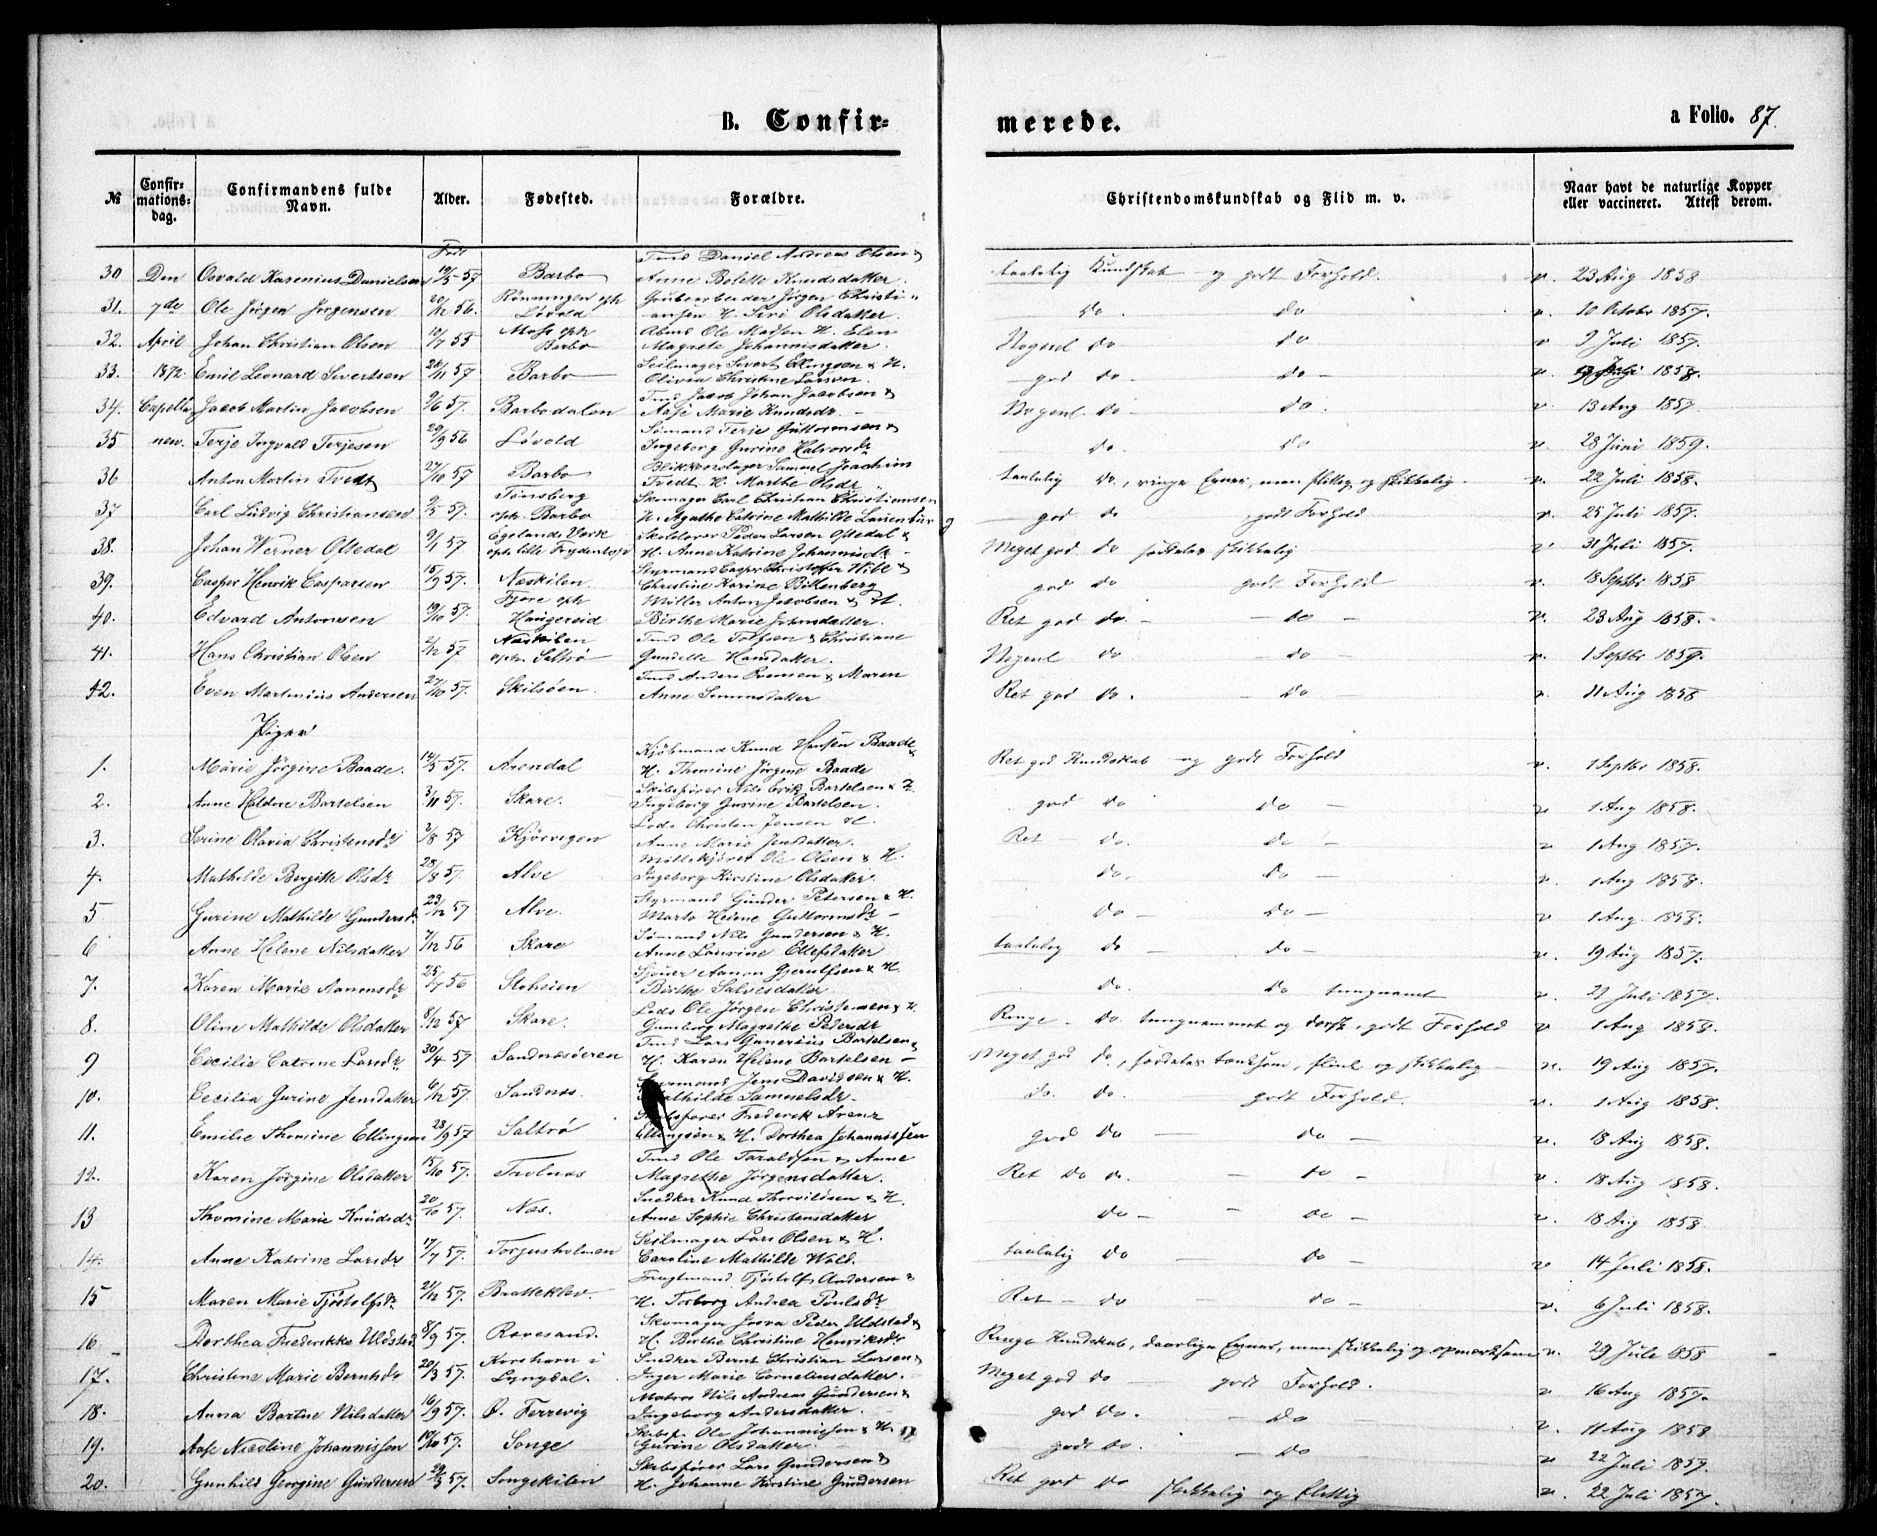 B. Confir= merede. a Folio. 87.
№ Confir= mations= dag. Confirmandens fulde Navn. Alder. Fødested. Forældre. Christendomskundskab og Flid m. v. Naar havt de naturlige Kopper eller vaccineret. Attest derom.
Født Tmd Daniel Andreas Olsen &
30 Den Osvald Karenius Danielsen 19/5 57 Barbo Anne Bolette Knudsdatter. taalelig Kundskab og godt Forhold. v. 23 Aug 1858
31. 7de Ole Jörgen Jörgensen 20/12 56. Rönningen opt Lövold Grubearbeider Jörgen Christi= ansen H. Siri Olsdatter. do. do v. 10 Octobr 1857.
32. April Johan Christian Olsen 10/7 55 Moss opt Barbo Abmd Ole Madsen H. Elen Magrete Johannisdatter. Nogenl do do v 9 Juli 1857.
33. 1872. Emil Leonard Sivertsen 26/11 57 Barbo Seilmager Sivert Ellingsen & H. Olivia Christine Larsen. god do do v. Juli 1858.
34. Capellanen. Jacob Martin Jacobsen 9/6 57. Barbodalen Tmd Jacob Johan Jacobsen & Aase Marie Knudsdr. Nogenl. do do. v 13 Aug 1857
35 Terje Ingvald Terjesen 29/9 56 Lövold Sömand Terje Guttormsen & Ingeborg Gurine Halvorsdr do do v. 28 Juni 1859.
36 Anton Martin Tvedt 27/10 57 Barbo Blikkenslager Samuel Joachim Tvedt H. Marthe Olsdr taalelig do, ringe Evner, men flittig og skikkelig v. 22 Juli 1858.
37 Carl Ludvig Christiansen 9/5 57. Tönsberg opt. Barbo Skomager Carl Christian Christiansen H. Agathe Catrine Mathilde Lauenburg god do godt Forhold v. 25 Juli 1857.
38. Johan Werner Oftedal 9/1 57 Egelands Værk opt. lille Frydentop Skolelærer Peder Larsen Oftedal & H. Anne Katrine Johannisdr Meget god do særdeles skikkelig v 31 Juli 1857.
39. Casper Henrik Caspersen 15/9 57. Neskilen Styrmand Casper Christoffer Wibe & Christine Karine Bittenberg god do godt Forhold v. 18 Septbr 1858
40. Edvard Antonsen 19/10 57. Fjære opt Haugereid Möller Anton Jacobsen & H. Birthe Marie Johnsdatter. Ret god do. do v. 23 Aug 1858.
41. Hans Christian Olsen 2/12 57 Neskilen opt. Saltrö Tmd Ole Tolfsen & Christiane Gunelle Hansdatter. Nogenl do do v. 1 Septbr 1859.
42. Even Martinius Andersen 27/10 57. Skilsöen. Tmd Anders Evensen & Maren Anne Simonsdatter Ret god do. do v. 11 Aug 1858
Piger
1. Marie Jörgine Baade. 14/5 57. Arendal Kjöbmand Knud Hansen Baade & H. Thomine Jörgine Baade Ret god Kundskab og godt Forhold v. 1 Septbr 1858.
2. Anne Haldore Bartelsen 3/11 57. Skare. Skibsförer Nils Erik Bartelsen & H. Ingeborg Gurine Bartelsen. god do do v 1 Aug 1858.
3. Serine Olavia Christensdr 3/8 57 Kjörvigen Lods Christen Jensen H. Anne Marie Jensdatter. Ret do. do v 1 Aug 1857.
4. Mathilde Bergitte Olsdr 28/8 57. Alve Ole Olsen & H. Ingeborg Kirstine Olsdatter. do. do v. 1 Aug 1858.
5 Gurine Mathilde Gundersdr 23/12 57 Alve. Styrmand Gunder Petersen & H. Marte Helene Guttormsdr do do v 1 Aug. 1858.
6 Anne Helene Nilsdatter 7/12 56 Skare Sömand Nils Gundersen & H. Anne Laurine Ellefsdatter taalelig do do v. 19 Aug 1857.
7. Karen Marie Aanonsdr 25/7 56 Stoheien Sjouer Aanon Gjerulfsen & H. Birthe Salvesdatter do. do tungnemt v. 27 Juli 1857.
8. Oline Mathilde Olsdatter 8/12 57 Skare. Lods Ole Jörgen Christensen & H. Gunborg Magrethe Petersdr Ringe do. tungnemmet og dorsk, godt Forhold v 1 Aug 1858.
9 Cecilie Catrine Larsdr 30/4 57 Sandnæsöeren Tmd Lars Gunerius Bartelsen & H. Karen Helene Bartelsen Meget god do, særdeles tænksom, flink og skikkelig v. 19 Aug 1857.
10. Cecilia Gurine Jensdatter 6/12 57. Sandnæs. Styrmand Jens Davidsen & H. Mathilde Samuelsdr do. do. godt Forhold. v. 1 Aug 1858.
11. Emilie Thomine Ellingsen 28/9 57 Saltrö Skibsförer Frederik Arenz Ellingsen & H. Dorthea Johannissen god do do v. 18 Aug 1858.
12. Karen Jörgine Olsdatter 15/10 57. Trolnæs Tmd Ole Taraldsen & Anne Magrethe Jörgensdatter. Ret do do. do v. 18 Aug 1858.
13 Thomine Marie Knudsdr 20/10 57. Næs. Snedker Knud Thorvildsen & H. Anne Sophie Christensdatter do do v. 18 Aug 1858
14. Anne Katrine Larsdr 17/7 57. Torjusholmen Seilmager Lars Olsen & H. Caroline Mathilde Wold. taalelig do do v 14 Juli 1858.
15 Maren Marie Tjöstolfsdr 21/12 57. Bratteklev. Fragtmand Tjöstolf Andersen & H. Torborg Andrea Poulsdr Ret do do v. 6 Juli 1858.
16. Dorthea Frederikke Uldsted 8/9 57. Revesand. Skomager Josva Peder Uldsted & H. Birthe Christine Henriksdr Ringe Kundskab, daarlige Evner, men skikkelig og opmærksom v. 29 Juli 1858
17. Christine Marie Berntsdr 20/3 57. Korshavn i Lyngdal. Snedker Bernt Christian Larsen & Inger Marie Corneliusdatter. Meget god do godt Forhold. v 16 Aug 1857.
18. Anna Bartine Nilsdatter 16/9 57. Ö. Ferrevig Matros Nils Andreas Gundersen & Ingeborg Andersdatter. god do. do v. 11 Aug 1858
19. Aase Nicoline Johannissen 19/10 57. Songe Skibsf. Ole Johannissen & H. Gurine Olsdatter. godt do. do v 22 Juli 1857.
20. Gunhild Georgine Gundersen 29/3 57. Songekilen Skibsförer Lars Gundersen & H. Johanne Kirstine Gundersen Ret god do skikkelig og flittig v. 22 Juli 1857.